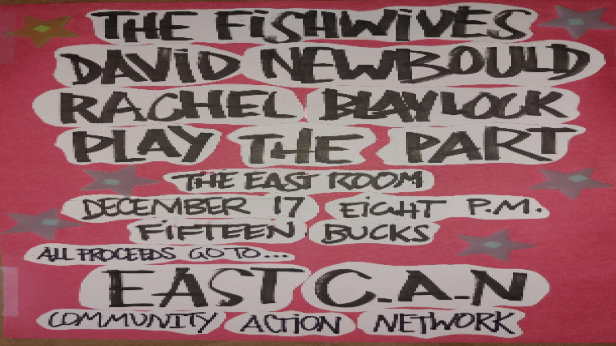 THE FISHWIVES
DAVID NEWBOULD
RACHEL BLAYLOCK
PLAY THE PART
THE EAST ROOM
DECEMBER 17 EIGHT P.M.
FIFTEEN BUCKS
ALL PROCEEDS GO TO...
EAST C.A.N
COMMUNITY ACTION NETWORK